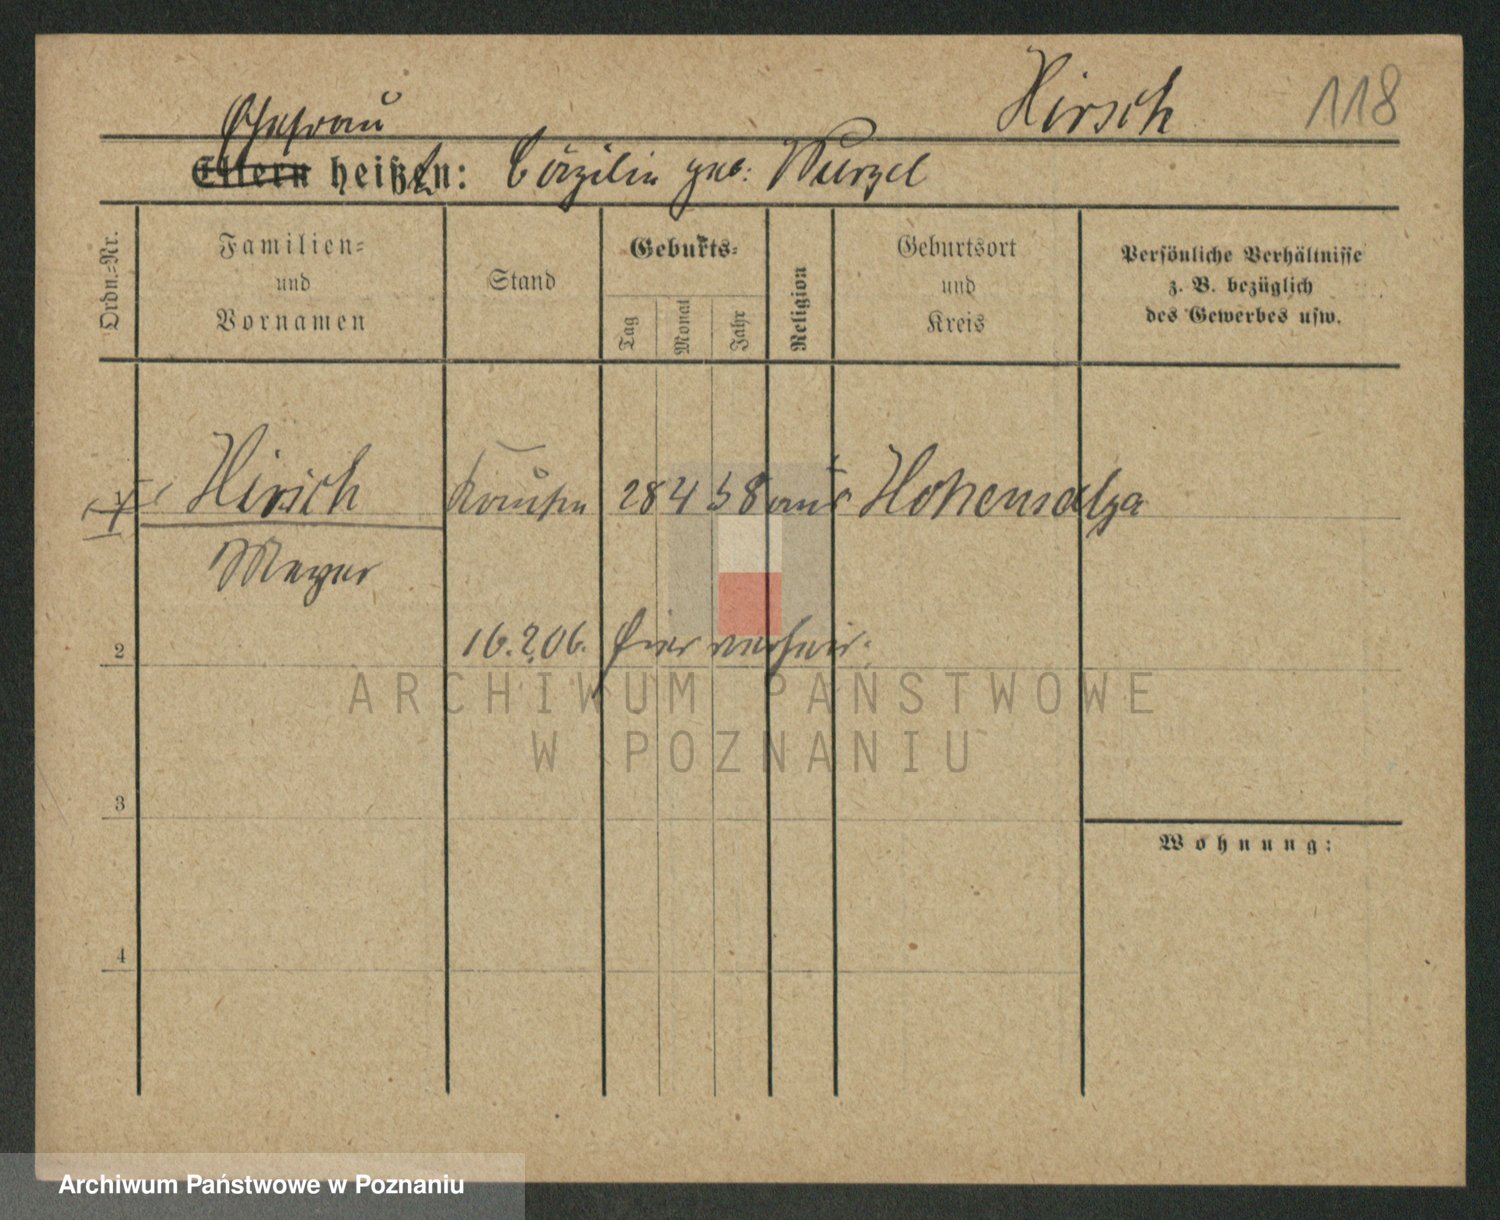 Hirsch 118
Ehefrau
Eltern heißt: Cäzilie geb. Wurzel
Ordn.-Nr.
Familien-
und
Vornamen
Stand
Geburts-
Tag
Monat
Jahr
Religion
Geburtsort
und
Kreis
Persönliche Verhältnisse
z. B. bezüglich
des Gewerbes usw.
Hirsch 28 4 58 aus Hohensalza
Meyer
16.2.06. hier verheir.
2
3
4
Wohnung:
ARCHIWUM PAŃSTWOWE
W POZNANIU
Archiwum Państwowe w Poznaniu